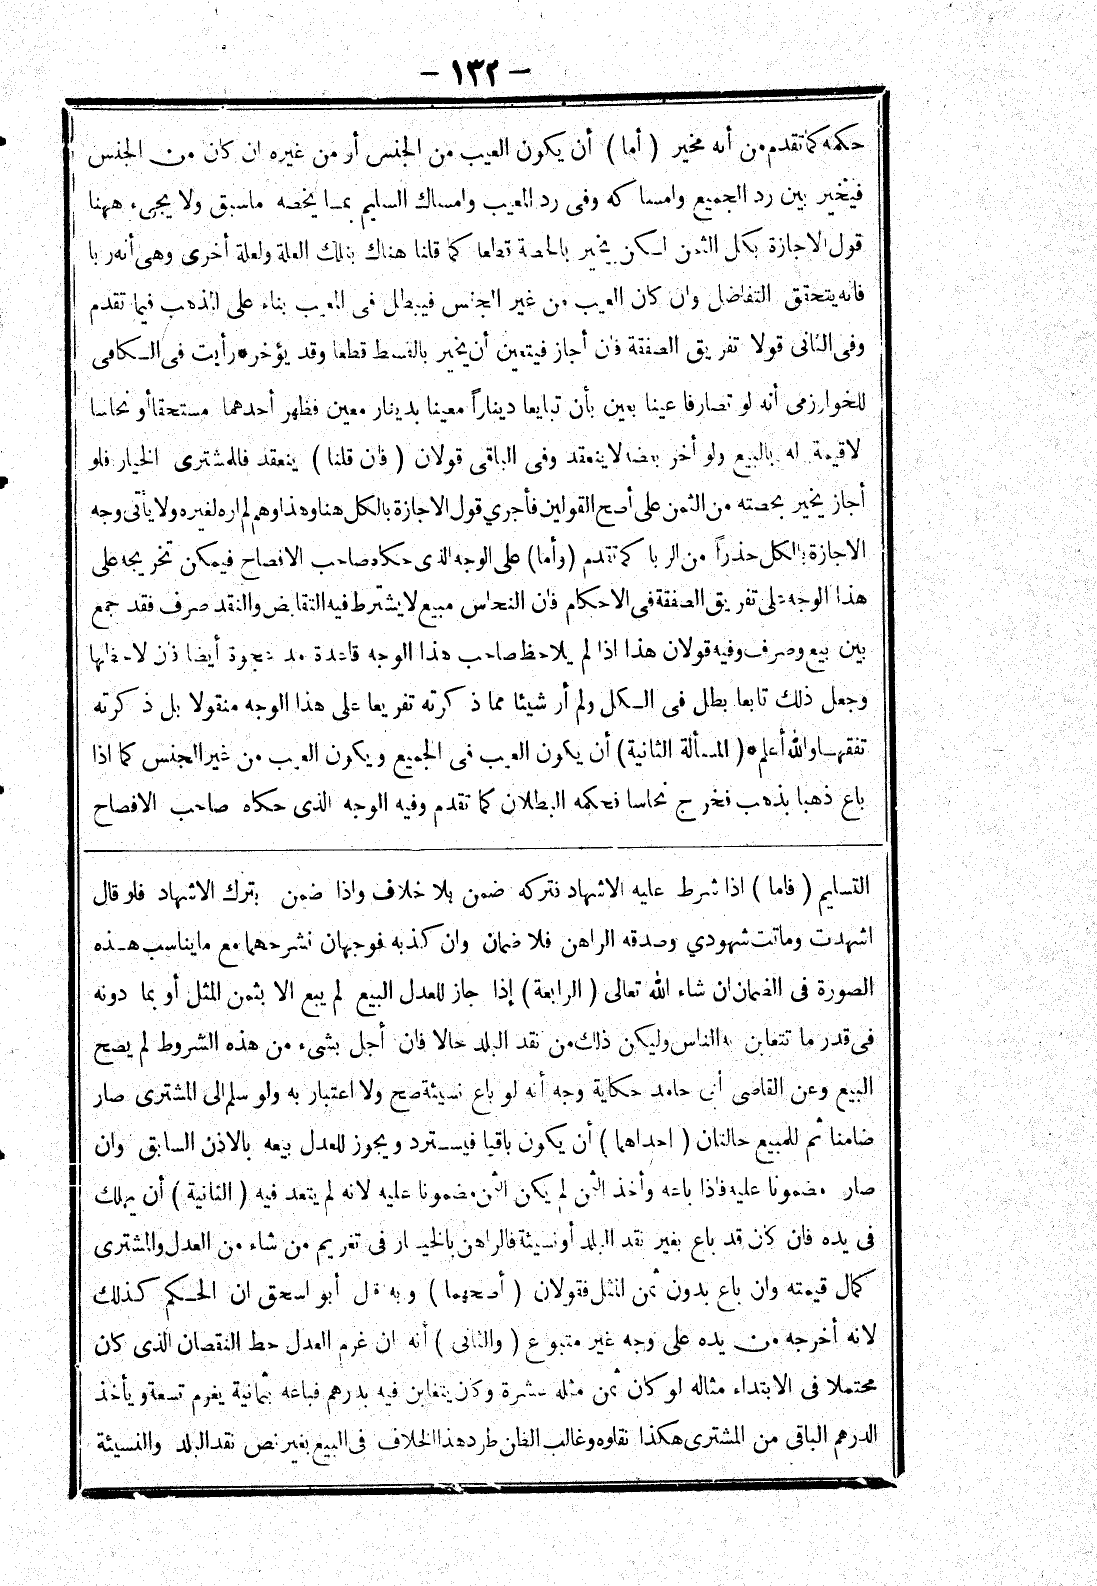 - ١٣٢ -
حكمه كما تقدم من أنه مخير ( أما ) أن يكون العيب من الجنس أو من غيره ان كان من الجنس
فيتخير بين رد الجميع وامساكه وفى رد المعيب وامساك السليم بما يخصه ماسبق ولا يجىء ههنا
قول الاجازة بكل الثمن لكن يخير بالحصة قطعا كما قلنا هناك بتلك العلة ولعلة أخرى وهى أنه ربا
فانه يتحقق التفاضل وان كان العيب من غير الجنس فيبطل فى المعيب بناء على المذهب فيما تقدم
وفى الثانى قولا تفريق الصفقة فان أجاز فيتعين أن يخير بالقسط قطعا وقد يؤخر * رأيت فى الكافى
للخوارزمى أنه لو تصارفا عينا بعين بأن تبايعا ديناراً معينا بدينار معين فظهر أحدهما مستحقا أو نحاسا
لاقيمة له بالبيع ولو أخر بعضه لا ينعقد وفى الباقى قولان ( فان قلنا ) ينعقد فللمشترى الخيار فلو
أجاز يخير بحصته من الثمن على أصح القولين فأجري قول الاجازة بالكل هنا وهذا وهم لم اره لغيره ولا يأتى وجه
الاجازة بالكل حذراً من الربا كما تقدم ( وأما ) على الوجه الذى حكاه صاحب الافصاح فيمكن تخريجه على
هذا الوجه على تفريق الصفقة فى الاحكام فان النحاس مبيع لا يشترط فيه التقابض والنقد صرف فقد جمع
بين بيع وصرف وفيه قولان هذا اذا لم يلاحظ صاحب هذا الوجه قاعدة مد عجوة أيضا فان لاحظها
وجعل ذلك تابعا بطل فى الكل ولم أر شيئا مما ذكرته تفريعا على هذا الوجه منقولا بل ذكرته
تفقها والله أعلم * ( المسألة الثانية ) أن يكون العيب فى الجميع ويكون العيب من غير الجنس كما اذا
باع ذهبا بذهب فخرج نحاسا فحكمه البطلان كما تقدم وفيه الوجه الذى حكاه صاحب الافصاح
التسليم ( فاما ) اذا شرط عليه الاشهاد فتركه ضمن بلا خلاف واذا ضمن بترك الاشهاد فلو قال
اشهدت وماتت شهودي وصدقه الراهن فلا ضمان وان كذبه فوجهان نشرحهما مع مايناسب هذه
الصورة فى الضمان ان شاء الله تعالى ( الرابعة ) إذا جاز للعدل البيع لم يبع الا بثمن المثل أو بما دونه
فى قدر ما تتغابن به الناس وليكن ذلك من نقد البلد حالا فان أجل بشىء من هذه الشروط لم يصح
البيع وعن القاضى أبى حامد حكاية وجه أنه لو باع نسيئة صح ولا اعتبار به ولو سلم الى المشترى صار
ضامنا ثم للمبيع حالتان ( احداهما ) أن يكون باقيا فيسترد ويجوز للعدل بيعه بالاذن السابق وان
صار مضمونا عليه فاذا باعه وأخذ الثمن لم يكن الثمن مضمونا عليه لانه لم يتعد فيه ( الثانية ) أن يهلك
فى يده فان كان قد باع بغير نقد البلد أو نسيئة فالراهن بالخيار فى تغريم من شاء من العدل والمشترى
كمال قيمته وان باع بدون ثمن المثل فقولان ( أصحهما ) وبه قال أبو اسحق ان الحكم كذلك
لانه أخرجه من يده على وجه غير متبوع ( والثانى ) أنه ان غرم العدل حط النقصان الذى كان
محتملا فى الابتداء مثاله لو كان ثمن مثله عشرة وكان يتغابن فيه بدرهم فباعه بثمانية يغرم تسعة ويأخذ
الدرهم الباقى من المشترى هكذا نقلوه وغالب الظن طرد هذا الخلاف فى البيع بغير نص نقد البلد والنسيئة